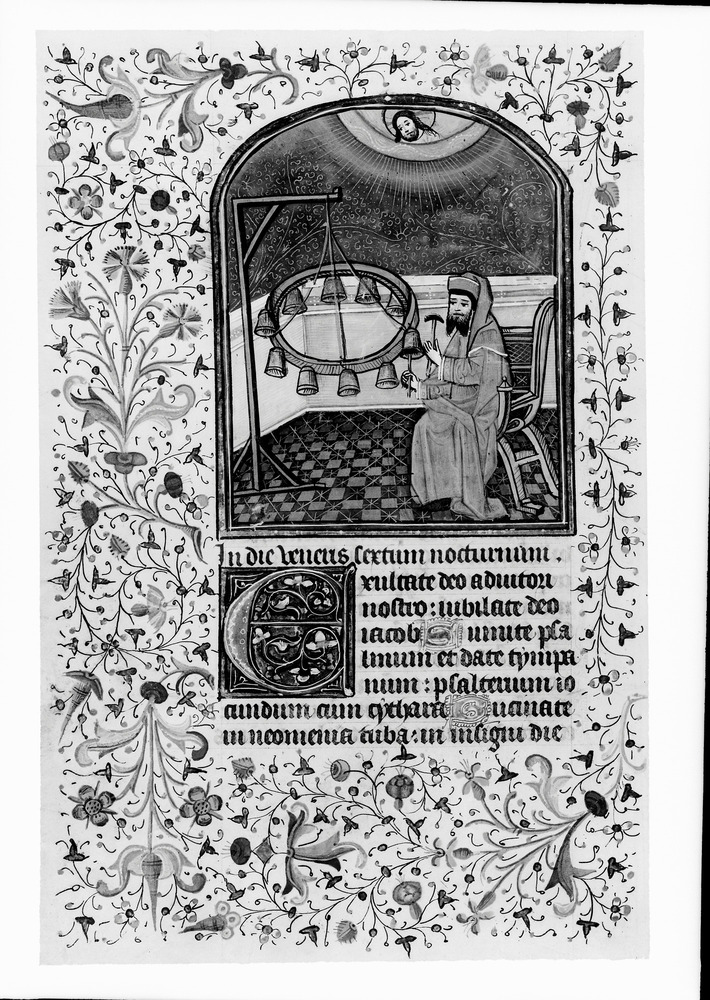 In die veneris sextum nocturnum.
Exultate deo adiutori
nostro: iubilate deo
iacob Sumite psa
lmum et date tympa
num: psalterium io
cundum cum cythara Bucinate
in neomenia tuba: in insigni die